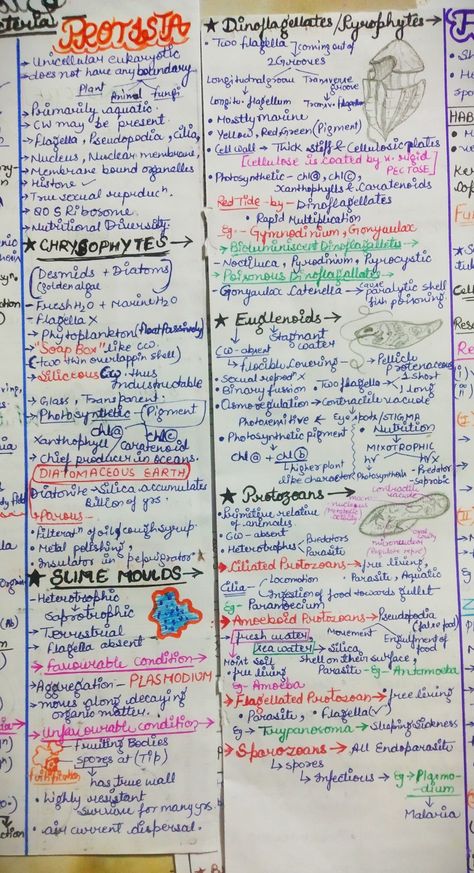 PROTISTA
→ Unicellular eukaryotic
→ does not have any boundary
Plant Animal fungi
→ Primarily aquatic.
→ CW may be present.
→ Flagella, Pseudopodia, Cilia,
→ Nucleus, Nuclear membrane,
→ Membrane bound organelles
→ Histone ✓
→ True sexual reproducn.
→ 80 S Ribosome
→ Nutritional Diversity.
★ CHRYSOPHYTES →
Desmids + Diatoms
(golden algae
→ Fresh H2O + Marine H2O
→ Flagella X
→ Phytoplankton (float passively)
→ "Soap Box" like CW
(two thin overlappin shell)
→ Siliceous CW thus
Indestrudable
→ Glass, Transparent
→ Photosynthetic - Pigment
chl ⓐ
chl ⓒ
Xanthophyll / caratenoid
→ Chief producer in oceans.
DIATOMACEOUS EARTH
Diatomite → Silica accumulates
Billion of yrs.
→ Porous →
• Filteran of oil, cough syrup.
• Metal polishing,
• Insulator in refrigrator
★ SLIME MOULDS →
→ Heterotrophic
↳ Saprotrophic
→ Terrestrial
→ Flagella absent
→ Favourable Condition →
→ Aggregation - PLASMODIUM
→ moves along decaying
organic matter.
→ Unfavourable condition
↳ fruiting Bodies
↳ spores at (Tip)
↳ has true wall
• highly resistant
survive for many yrs.
• air current dispersal.
★ Dinoflagellates / Pyrophytes →
• Two flagella → coming out of
2 Grooves
Longitudnal groove Transverse groove
Longitu. flagellum Transv. flagellum
• Mostly marine
• Yellow, Red, Green (Pigment)
• Cell wall → Thick stiff & Cellulosic plates
[Cellulose is coated by v. rigid PECTOSE]
• Photosynthetic - chl ⓐ, chl ⓒ,
Xanthophylls & Caratenoids
Red Tide - by → Dinoflagellates
• Rapid Multiplication
Eg. - Gymnodinium, Gonyaulax
→ Bioluminiscent Dinoflagellates →
- Noctiluca, Pyrodinium, Pyrocystic
→ Poisonous Dinoflagellates →
- Gonyaulax Catenella → cause paralytic shell
fish poisoning.
★ Euglenoids →
Stagnant
water
CW - absent
↳ flexible covering → Pellicle
Proteinaceous
• Sexual reprod X
• Binary fussion • Two flagella → 1 Short
1 long
• Osmoregulation → Contractile vacuole
Photosensitive ← Eye spots / STIGMA
• Photosynthetic pigment
• Nutrition
chl ⓐ + chl ⓑ
MIXOTROPHIC
↳ higher plant
like character
Photosynthesis
- Predator
- Saprobic
★ Protozoans →
contractile
vacuole
• Primitive relative
of animals
• CW - absent
• Heterotrophs
Predators
Parasite
→ Ciliated Protozoans → free living,
Parasite, Aquatic
Cilia - Locomotion
Ingestion of food towards gullet
Eg - Paramoecium
→ Amoeboid Protozoans → Pseudopodia
(false foot)
→ fresh water
Movement Engulfment of
food
sea water → Silica
Moist soil
shell on their surface,
• free living
Parasite - Eg - Antamoeba
Eg - Amoeba
→ Flagellated Protozoan → free living
• Parasite, • Flagella (✓)
Eg → Trypanosoma → Sleeping Sickness
→ Sporozoans → All Endoparasite
↳ spores
↳ Infectious → Eg → Plasmo-
dium
↳ Malaria